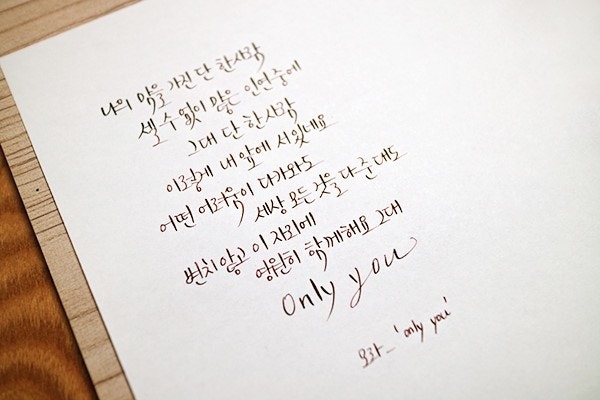 나의 맘을 가진 단 한사람
셀 수 없이 많은 인연중에
그대 단 한사람
이렇게 내 앞에 서있네요
어떤 어려움이 다가와도
세상 모든 것을 다 준대도
변치 않고 이 자리에
영원히 함께해요 그대
Only you
요라_ 'only you'